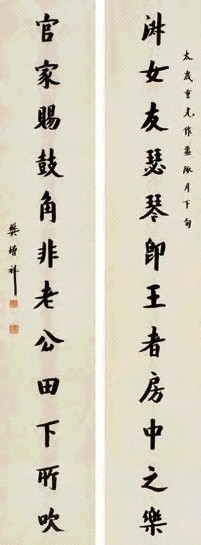 太歲重光作噩陬月下旬
淑女友瑟琴即王者房中之樂
官家賜鼓角非老公田下所吹
樊增祥